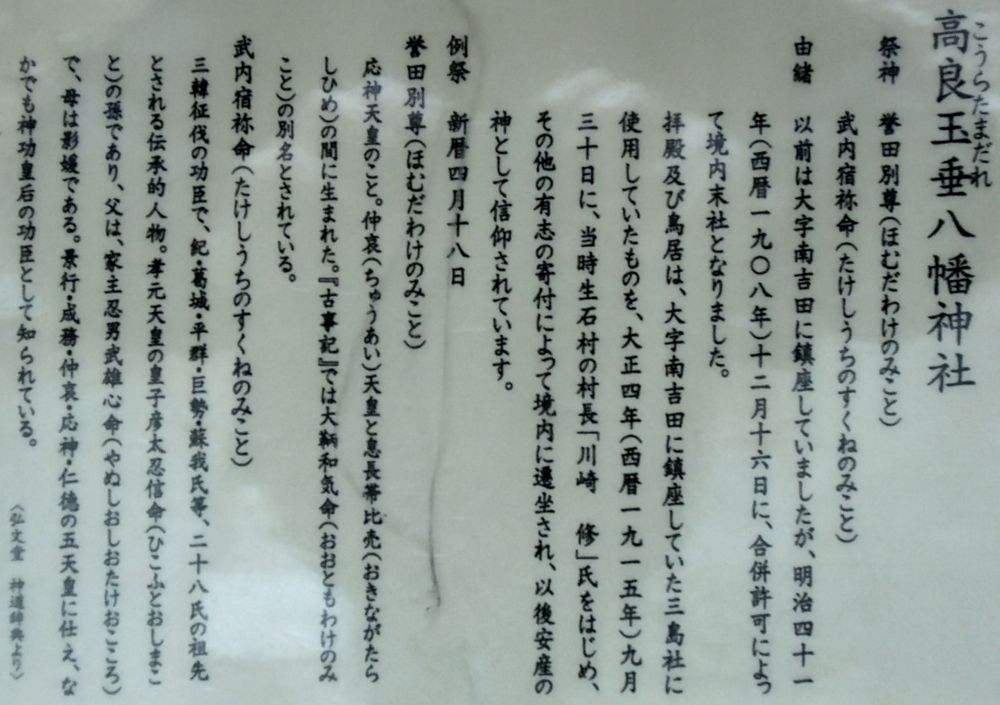 こうらたまだれ
高良玉垂八幡神社
祭神　誉田別尊(ほむだわけのみこと)
武内宿祢命(たけしうちのすくねのみこと)
由緒　以前は大字南吉田に鎮座していましたが、明治四十一
年(西暦一九〇八年)十二月十六日に、合併許可によっ
て境内末社となりました。
拝殿及び鳥居は、大字南吉田に鎮座していた三島社に
使用していたものを、大正四年(西暦一九一五年)九月
三十日に、当時生石村の村長「川崎　修」氏をはじめ、
その他の有志の寄付によって境内に遷坐され、以後安産の
神として信仰されています。
例祭　新暦四月十八日
誉田別尊(ほむだわけのみこと)
応神天皇のこと。仲哀(ちゅうあい)天皇と息長帯比売(おきながたら
しひめ)の間に生まれた。『古事記』では大鞆和気命(おおともわけのみ
こと)の別名とされている。
武内宿祢命(たけしうちのすくねのみこと)
三韓征伐の功臣で、紀・葛城・平群・巨勢・蘇我氏等、二十八氏の祖先
とされる伝承的人物。孝元天皇の皇子彦太忍信命(ひこふとおしまこ
と)の孫であり、父は、家主忍男武雄心命(やぬしおしおたけおこころ)
で、母は影媛である。景行・成務・仲哀・応神・仁徳の五天皇に仕え、な
かでも神功皇后の功臣として知られている。
(弘文堂　神道辞典より)